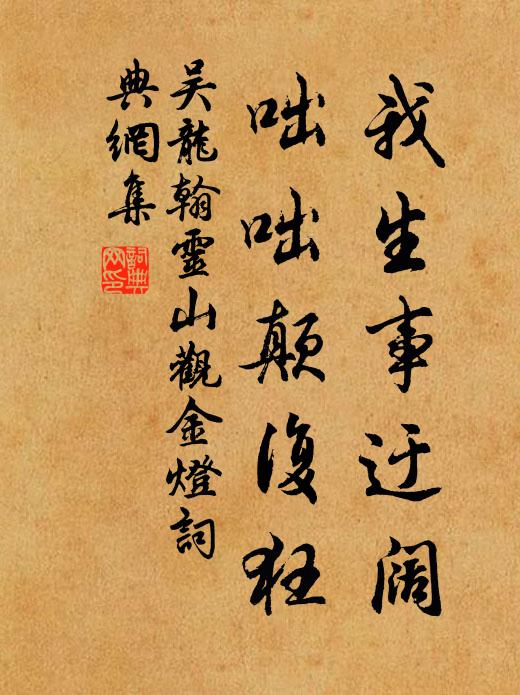 我生事迂阔
咄咄颠復狂
吴龍翰靈山觀金燈詞
典網集
詞典
网印